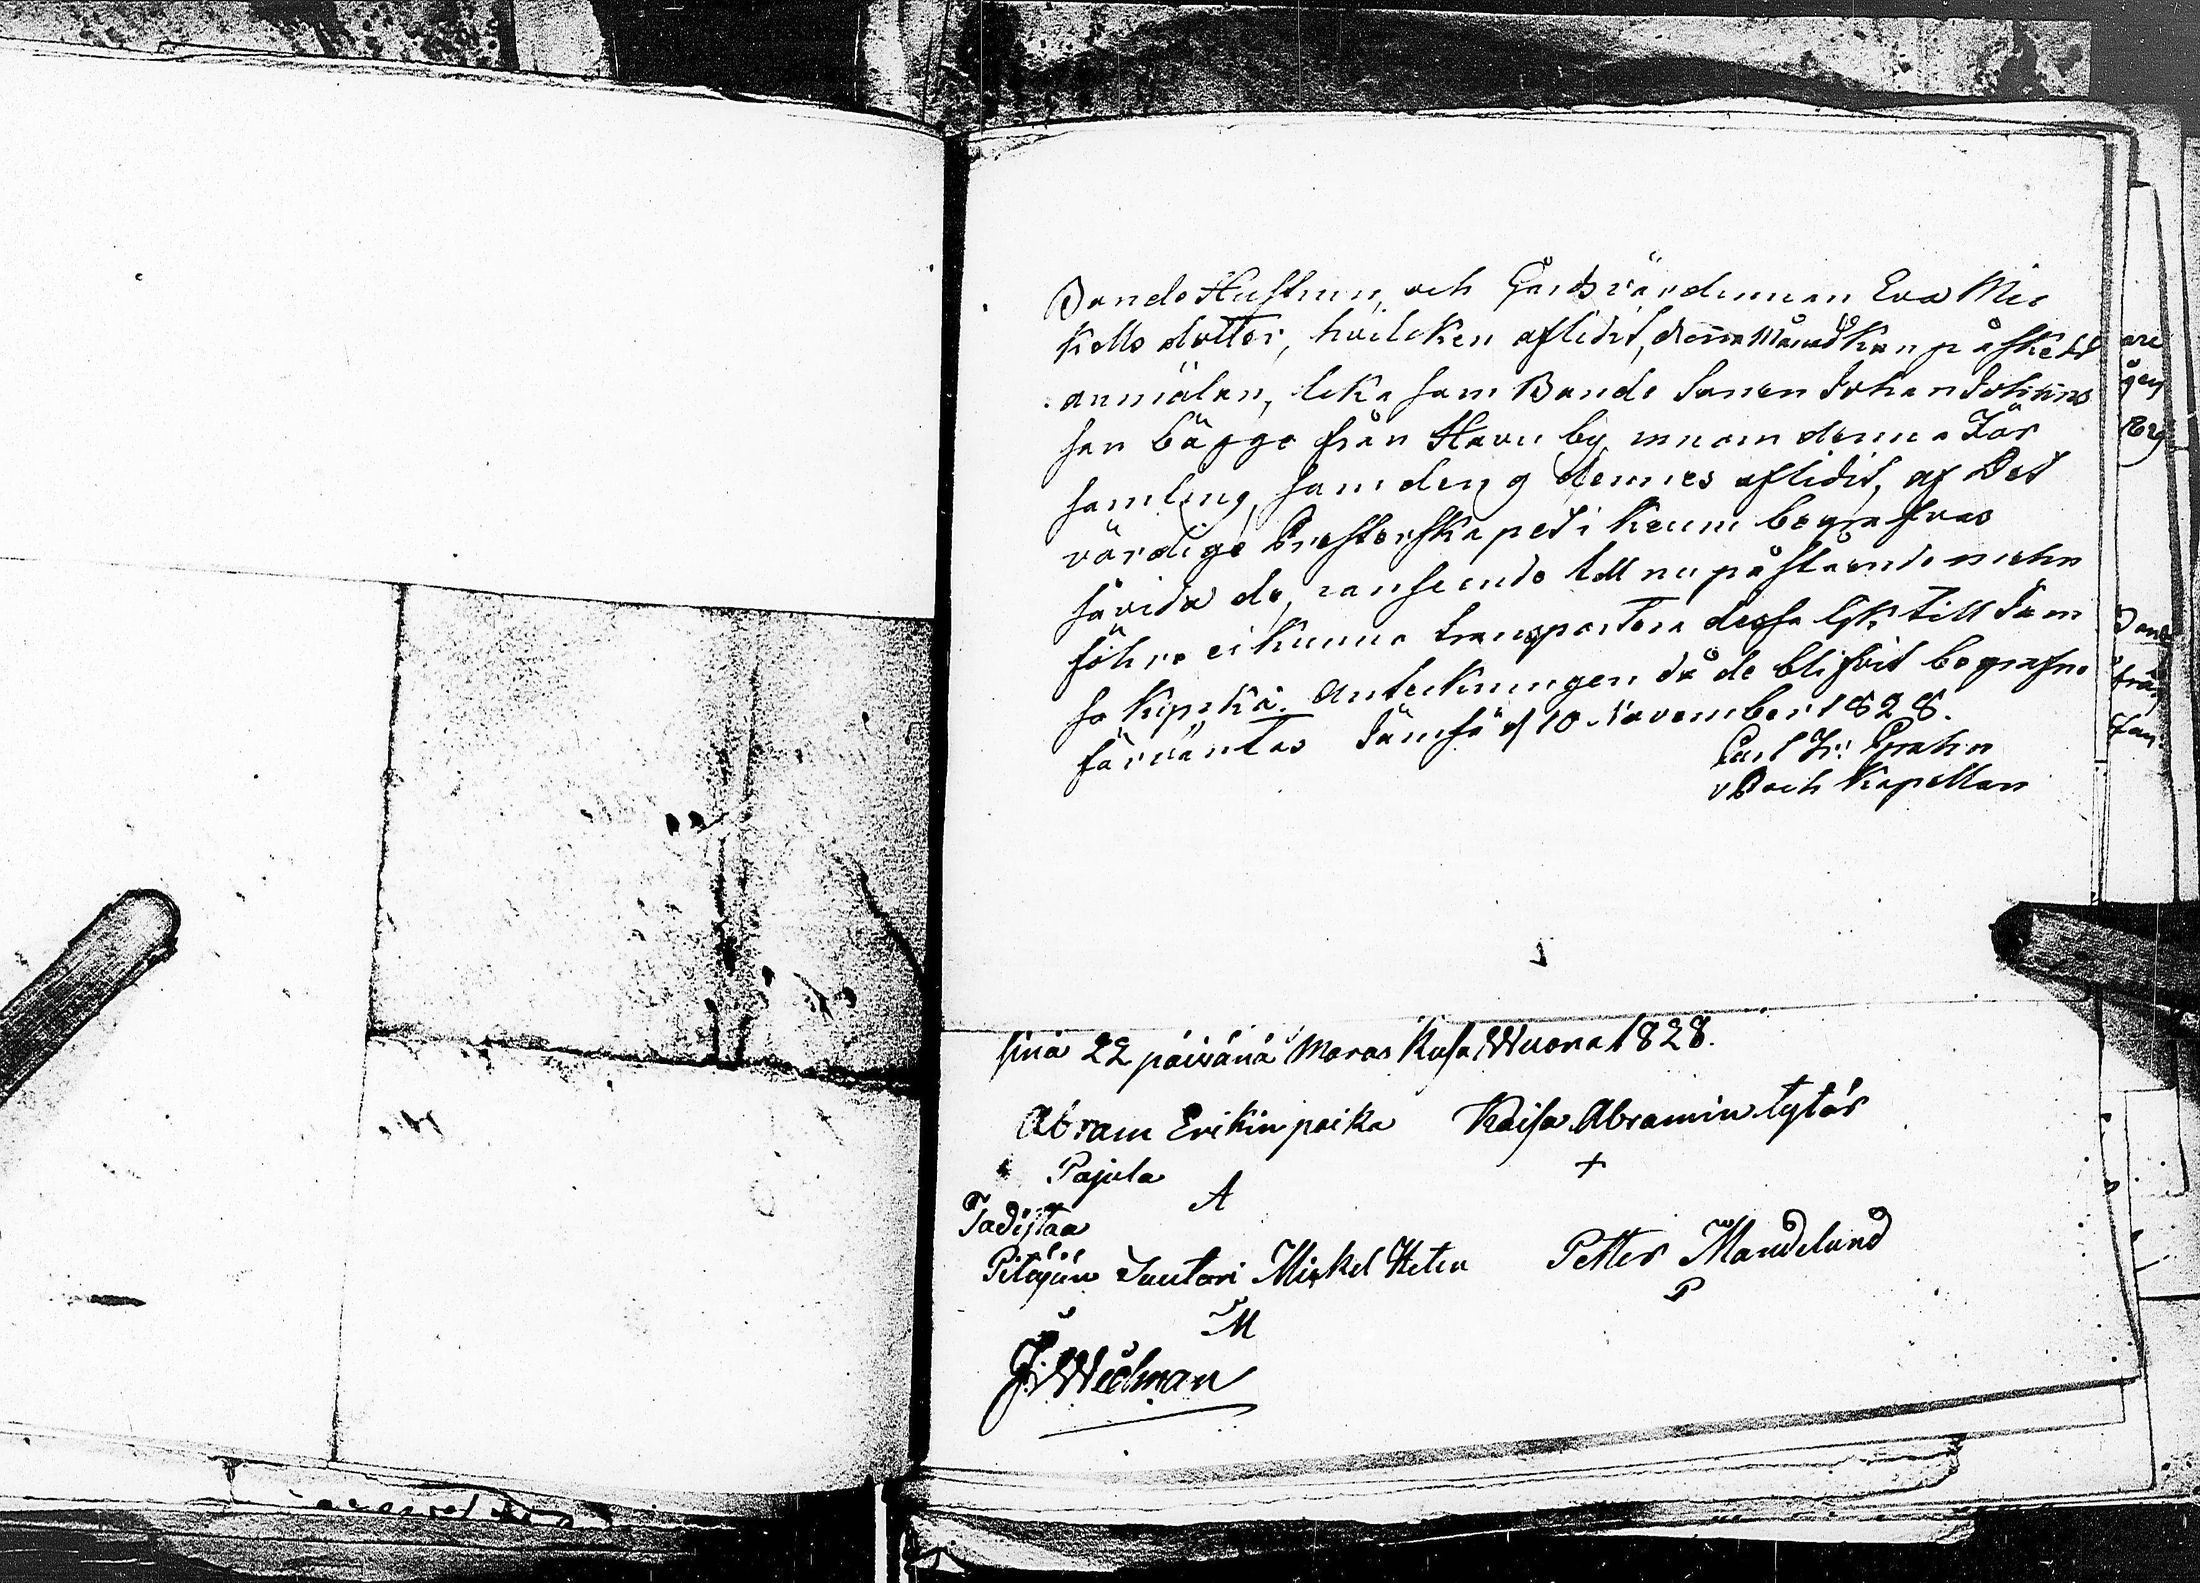 Bonde Hustrun, och Gårdsvärdinnan Eva Mic
kells dotter, hvilcken aflidit, denna Månad kan på skedd
anmälan, lika som Bonde Sonen Johan Johans
son bägge från Havu by innom denna För
samling, som den 9 dennes aflidit, af Det
vördige Presterskapet i Keuru begrafvas
såvida de, i anseende till nu påstående mehn
föhre ei kunna transportera dessa lik till Jäm
sä kyrka. Anteckningen då de blifvit begrafne
förväntas Jämsä d 10 November 1828.
Carl Fr: Grahn
v P och Kapellan
are
gen
Sinä 22 päivänä Maras Kusa Wuona 1828.
Abram Erikin poika Kaisa Abramin tytär
Pajula +
A
Todistaa
Pitäjän Suutari Mickel Heten Petter Mandelund
M P
J: Wedman